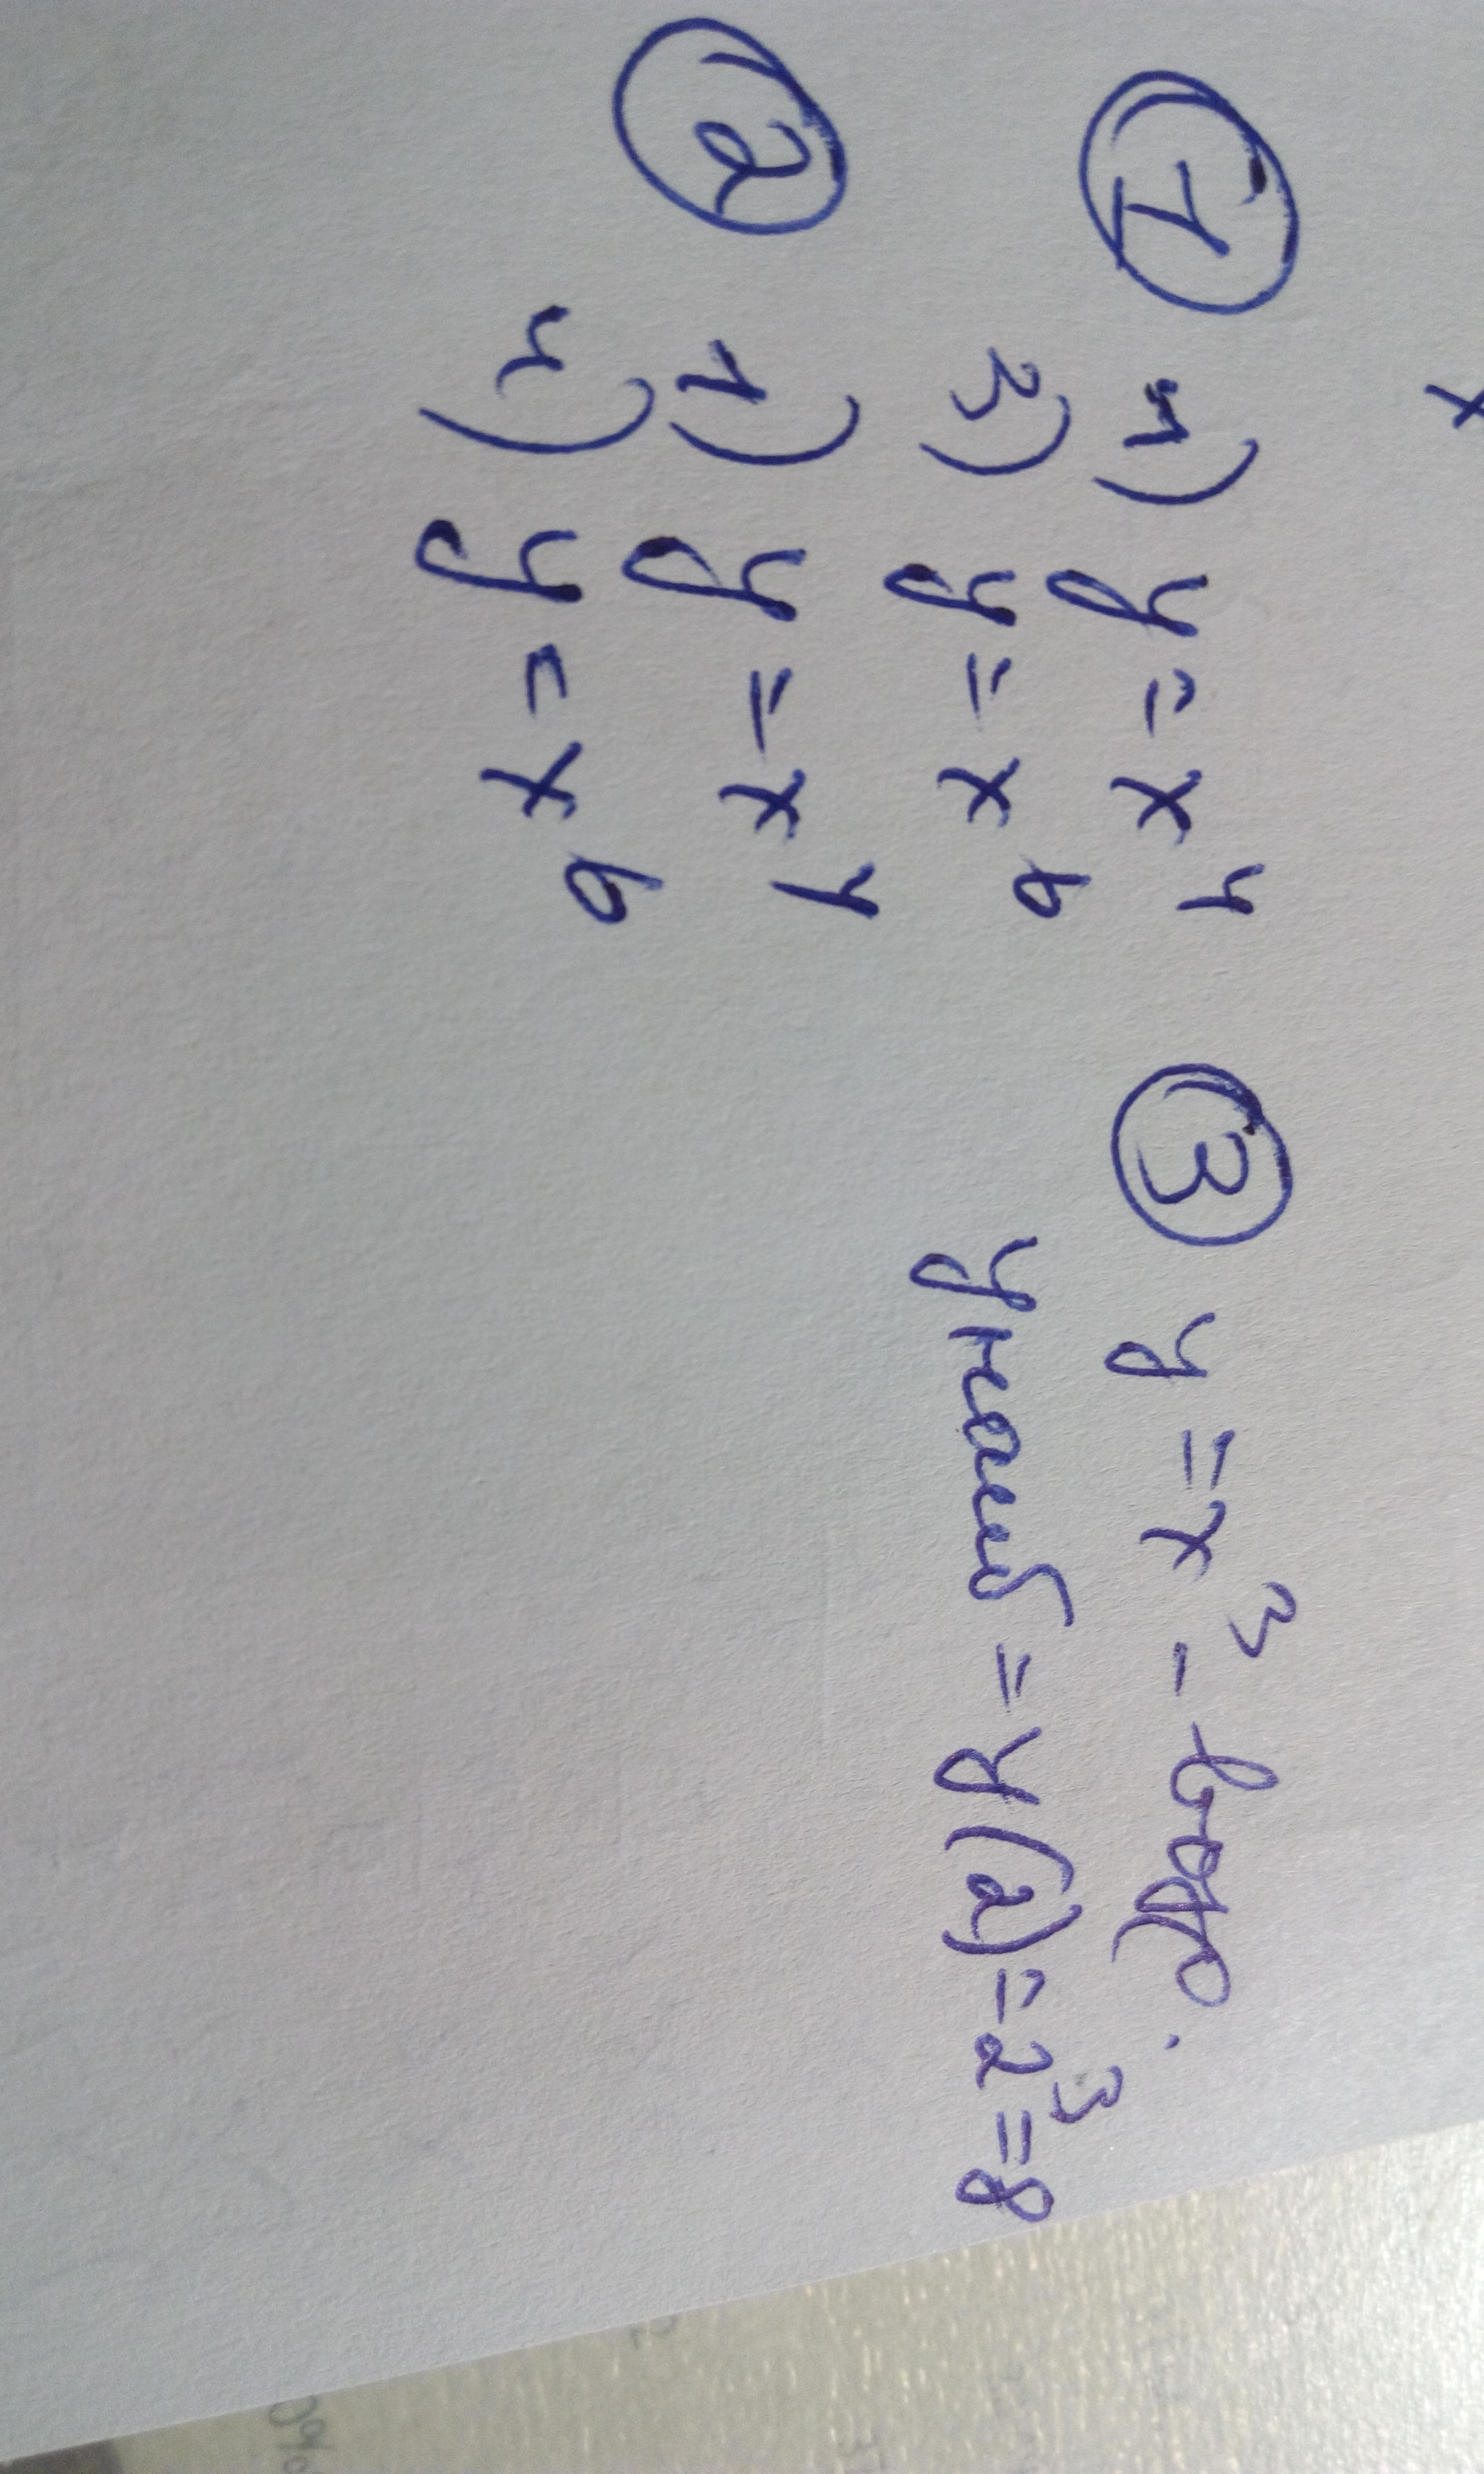 ① 4) y = x⁴
3) y = x⁶
② 1) y = x⁴
4) y = x⁶
③ y = x³ -
yнаиб = y(2) = 2³ = 8